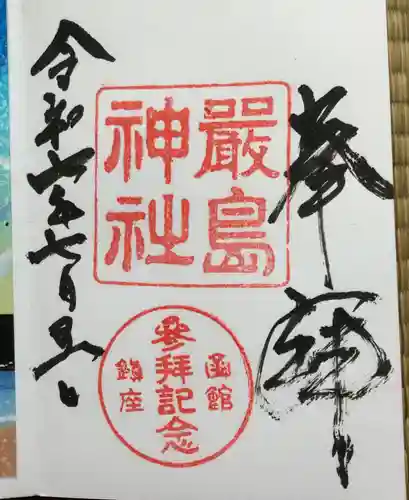 奉拝
嚴島
神社
函館
參拜記念
鎮座
令和六年七月吉日